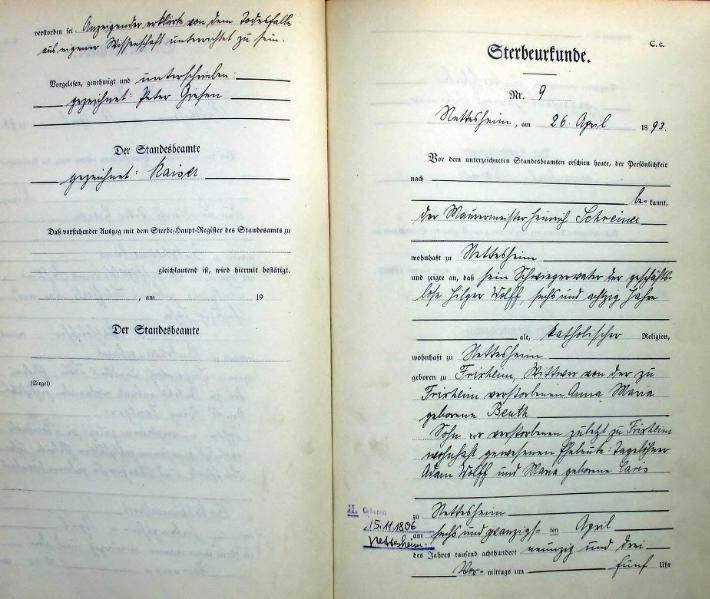 verstorben sei. Anzeigender erklärte von dem Todesfalle
aus eigener Wissenschaft unterrichtet zu sein.
Vorgelesen, genehmigt und unterschrieben:
gezeichnet: Peter Giesen
Der Standesbeamte
gezeichnet: Kaiser
Daß vorstehender Auszug mit dem Sterbe-Haupt-Register des Standesamts zu
gleichlautend ist, wird hiermit bestätigt.
, am 19
Der Standesbeamte
(Siegel)
C. c.
Sterbeurkunde.
Nr. 9
Nettesheim, am 26. April 1893.
Vor dem unterzeichneten Standesbeamten erschien heute, der Persönlichkeit
nach
be- kannt,
der Maurermeister Heinrich Schreiner
wohnhaft zu Nettesheim
und zeigte an, daß sein Schwiegervater der geschäfts-
lose Hilger Wolff, sechs und achtzig Jahre
alt, katholischer Religion,
wohnhaft zu Nettesheim
geboren zu Frixheim, Wittwer von der zu
Frixheim verstorbenen Anna Maria
geborene Beuth
Sohn der verstorbenen zuletzt zu Frixheim
wohnhaft gewesenen Eheleute: Tagelöhner
Adam Wolff und Maria geborene
zu Nettesheim
am sechs und zwanzigs- ten April
des Jahres tausend achthundert neunzig und drei
Vor- mittags um fünf Uhr
II. Geboren
15.11.1806
Nettesheim.